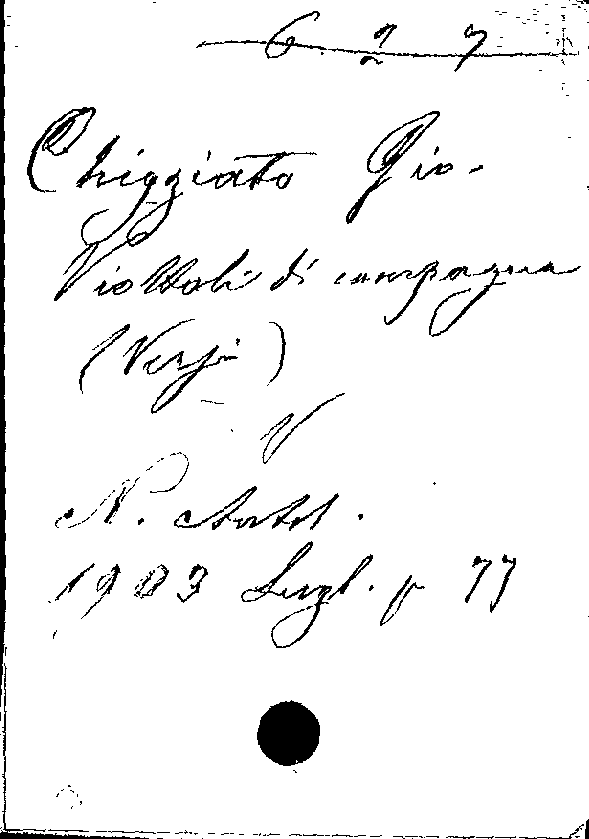 6 2 7
Chiggiato Gio.
Viottoli di campagna
(Versi)
V
N. Antol.
1903 Lugl. p 77